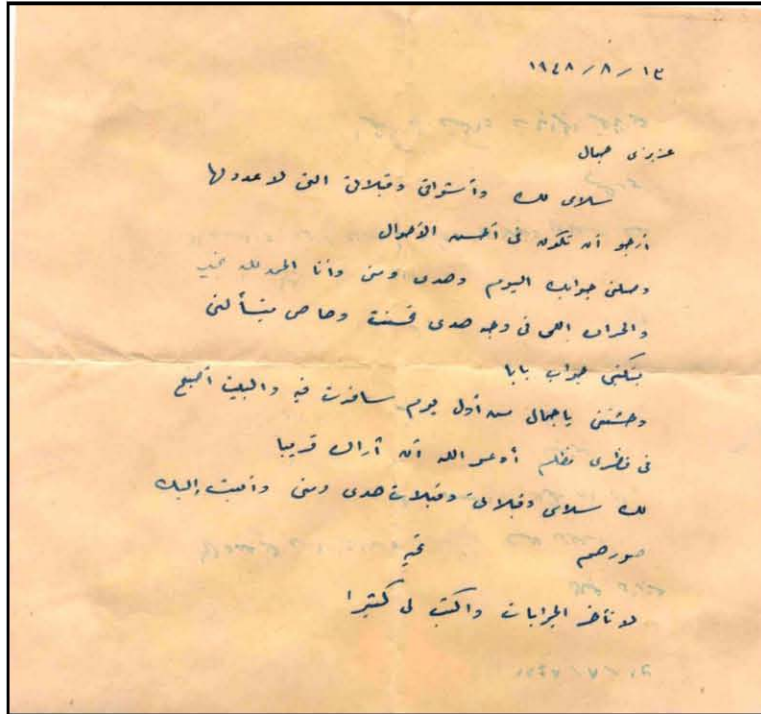 ١٩٤٨/٨/١٣
عزيزى جمال
سلامى لك وأشواقى وقبلاتى التى لا عدد لها
أرجو أن تكون فى أحسن الأحوال
وصلنى جوابك اليوم وهدى ومنى وأنا الحمد لله بخير
والحرارة اللى فى وجه هدى تحسنت
بابا
وحشتنى ياجمال من أول يوم سافرت فيه والبيت أصبح
فى نظرى مظلم أدعو الله أن أراك قريبا
لك سلامى وقبلاتى وقبلات هدى ومنى وأبعث إليك
صورهم تحية
لا تأخر الجوابات واكتب لى كثيرا